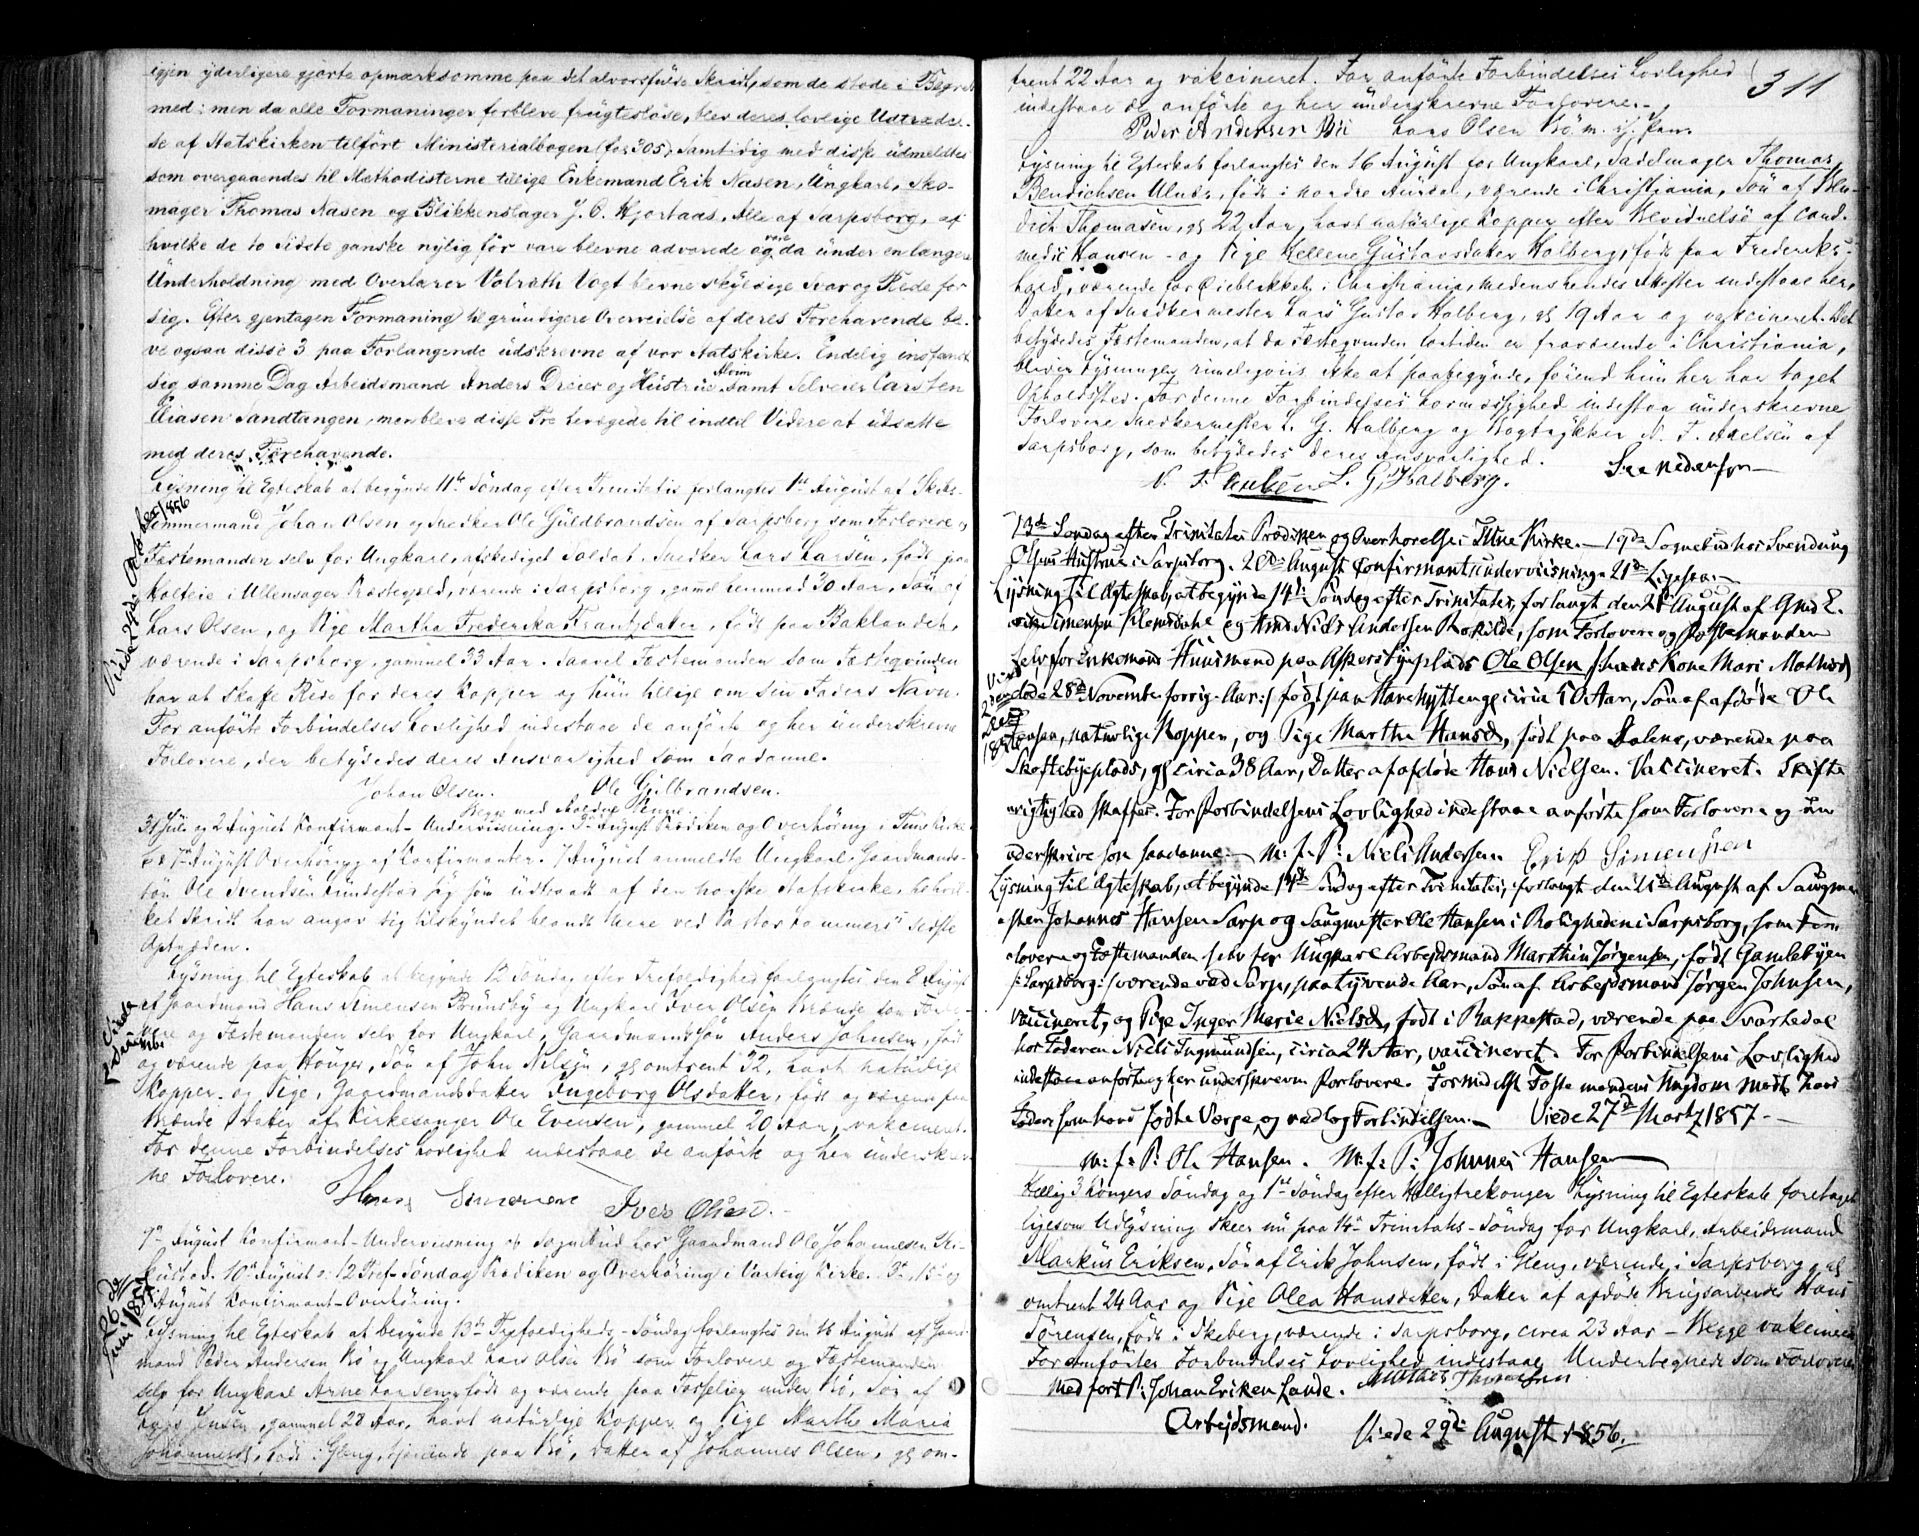 igjen yderligere gjorte opmærksomme paa det alvorsfulde Skridt, som de stode i Begreb
med; men da alle Formaninger forbleve frugtesløse, blev deres lovlige Udtrædel-
se af Statskirken tilført Ministerialbogen (fol 305). Samtidig med disse udmeldtes
som overgaaendes til Methodisterne tillige Enkemand Erik Nasen, Ungkarl, Sko-
mager Thomas Nasen og Blikkenslager J. O. Hjortaas, Alle af Sarpsborg, af
hvilke de to sidste ganske nylig før vare blevne advarede og da under en længere
Underholdning med Overlærer Volrath Vogt blevne skyldige Svar og Rede for
sig. Efter gjentagen Formaning til grundigere Overveielse af deres Forehavende ble-
ve ogsaa disse 3 paa Forlangende udskrevne af vor Statskirke. Endelig indfandt
sig samme Dag Arbeidsmand Anders Dreier og Hustrue samt Selveier Carsten
Eliasen Sandtangen, men bleve disse Tre bevægede til indtil Videre at udsætte
med deres Forehavende.
Lysning til Egteskab at begynde 11te Søndag efter Trinitatis forlangtes 1ste August af Skibs-
tømmermand Johan Olsen og Snedker Ole Guldbrandsen af Sarpsborg som Forlovere og
Fæstemanden selv for Ungkarl, afskediget Soldat, Snedker Lars Larsen, født paa
Holteie i Ullensager Præstegjeld, værende i Sarpsborg, gammel henimod 30 Aar, Søn af
Lars Olsen, og Pige Martha Frederikke Frantzdatter, født paa Baklandet,
værende i Sarpsborg, gammel 33 Aar. Saavel Fæstemanden som Fæsteqvinden
har at skaffe Rede for deres Kopper og hun tillige om sin Faders Navn.
For anførte Forbindelses Lovlighed indestaae de anførte og her underskrevne
Forlovere, der betydedes deres Ansvarlighed som Saadanne.
Johan Olsen. Ole Gulbrandsen.
Begge med paaholden Penne.
31 Juli og 2 August Konfirmant-Underviisning. 3 August Prædiken og Overhøring i Tune Kirke.
7de August Overhøring af Konfirmanter. 7 August anmeldte Ungkarl, Gaardmands-
søn Ole Svendsen sig som udtraadt af den norske Statskirke, til hvil-
ket Skridt han angav sig tilskyndet blandt Mere ved Pastor Lammers' sidste
Optræden.
Lysning til Egteskab at begynde 12 Søndag efter Trefoldighed forlangtes den 8 August
af Gaardmand Hans Simensen Brunsby og Ungkarl Iver Olsen som Forlo-
vere og Fæstemanden selv for Ungkarl, Gaardmandssøn Anders Johnsen, født
og værende paa Houger, Søn af John Nilsen, gl omtrent 32, havt naturlige
Kopper, og Pige, Gaardmandsdatter Ingeborg Olsdatter, født og værende paa
Datter af Kirkesanger Ole Evensen, gammel 20 Aar, vakcineret.
For denne Forbindelses Lovlighed indestaae de anførte og her underskrev-
ne Forlovere.
Hans Simensen Iver Olsen.
9de August Konfirmant-Underviisning og Sognebud hos Gaardmand Ole Johannesen
10de August o: 12 Tref. Søndag Prædiken og Overhøring i Varteig Kirke. 15de og
August Konfirmant-Overhøring.
Lysning til Egteskab at begynde 13de Trefoldigheds-Søndag forlangtes den 16 August af Gaard-
mand Peder Andersen Bø og Ungkarl Lars Olsen Bø som Forlovere og Fæstemanden
selv for Ungkarl Arne Larsen, født og værende paa under Bø, Søn af
Lars Jensen, gammel 28 Aar, havt naturlige Kopper og Pige Marthe Maria
Johannesd, født i Gleng, tjenende paa Bø, Datter af Johannes Olsen, gl om-
Viede 24de October 1856
Viede
26de
Juni 1857
311
trent 22 Aar og vakcineret. For anførte Forbindelses Lovlighed
indestaae de anførte og her underskrevne Forlovere.
Peder Andersen Bø Lars Olsen Bø m. if. Pen.
Lysning til Egteskab forlangtes den 16 August for Ungkarl, Sadelmager Thomas
Bendichsen Ulnæs, født i nordre Aurdal, værende i Christiania, Søn af Ben-
dich Thomasen, gl 22 Aar, havt naturlige Kopper efter Bevidnelse af cand.
medic Hansen - og Pige Hellene Gustavsdatter Halberg, født paa Frederiks-
hald, værende for Øieblikket i Christiania, medens hendes Skifter indestaae her,
Datter af Snedkermester Lars Gustav Halberg, gl 19 Aar og vakcineret. Det
betydedes Fæstemanden, at da Fæsteqvinden fortiden er fraværende i Christiania,
bliver Lysningen rimeligviis ikke at paabegynde, førend hun her har taget
Opholdssted. For denne Forbindelses Lovmæssighed indestaa underskrevne
Forlovere Snedkermester L. G. Halberg og Bogtrykker N. F. Axelsen af
Sarpsborg, som betydedes deres Ansvarlighed. See nedenfor
N. F. Axelsen L. G. Halberg.
13de Søndag efter Trinitatis Prædiken og Overhørelse i Tune Kirke. — 19de Sognebud hos Svendung
Olsens Hustrue i Sarpsborg. 20de August Confirmantunderviisning. 21de Ligesaa.
Lysning til Ægteskab, at begynde 14de Søndag efter Trinitatis, forlangt den 21de August af Gmd E-
rik Simensen Klemsdahl og Gmd Niels Andersen Roskilde, som Forlovere og Fæstemanden
Selv for Enkemand Huusmand paa Asperbyeplads Ole Olsen /: hans Kone Mari Mathisd
døde 28de November forrig Aar :/ født paa Harehytteng circa 50 Aar, Søn af afdøde Ole
Jensen, naturlige Kopper, og Pige Marthe Hansd, født paa Dalene, værende paa
Skoftebyeplads, gl circa 38 Aar, Datter af afdøde Hans Nielsen. Vaccineret. Skifte
rigtighed skaffes. For Forbindelsens Lovlighed indestaae anførte som Forlovere og un
underskrive som saadanne. — m: f: P: Niels Andersen. Erik Simensen
Lysning til Ægteskab, at begynde 14de Søndag efter Trinitatis, forlangt den 21de August af Saugme-
steren Johannes Hansen Sarp og Saugmester Ole Hansen i Roligheden i Sarpsborg, som For-
lovere og Fæstemanden selv for Ungkarl Arbeidsmand Marthin Jørgensen, født Gamlebyen
/: Sarpsborg :/ værende ved Sarp, paa tyvende Aar, Søn af Arbeidsmand Jørgen Johnsen,
vaccineret, og Pige Inger Marie Nielsd, født i Rappestad, værende paa Svartedal
hos Faderen Niels Ingmundsen, circa 24 Aar, vaccineret. For Forbindelsens Lovlighed
indestaae anførte og her underskrevne Forlovere. Formedelst Fæstemandens Ungdom mødte hans
Fader som hans fødte Værge og vedtog Forbindelsen. — Viede 27de Martz 1857 —
m: f: P: Ole Hansen. m: f: P: Johannes Hansen
Hellig 3 Kongers Søndag og 1ste Søndag efter Helligtrekonger Lysning til Egteskab foretaget
ligesom Udlysning skeer nu paa 14de Trinitatis-Søndag for Ungkarl, Arbeidsmand
Markus Eriksen, Søn af Erik Johnsen, født i Gleng, værende i Sarpsborg, gl
omtrent 24 Aar og Pige Olea Hansdatter, Datter af afdøde Brugsarbeider Hans
Sørensen, født i Skeberg, værende i Sarpsborg, circa 23 Aar — Begge vakcinerede
For anførter Forbindelses Lovlighed indestaae Undertegnede som Forlovere
Med ført P: Johan Eriksen Lande. Mathis Thoresen
Arbejdsmand.
Viede 29de August 1856.